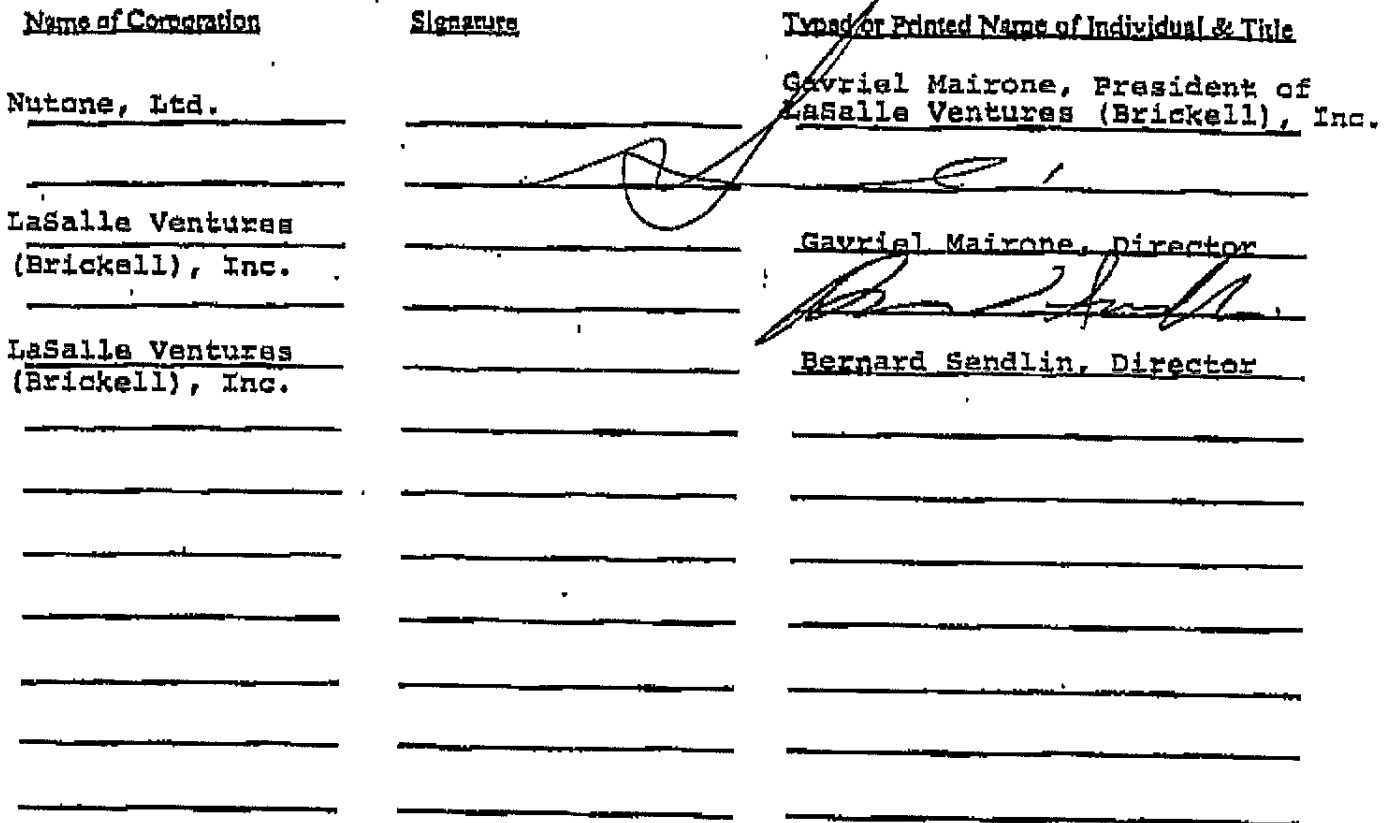 Name of Corporation Signature Typed or Printed Name of Individual & Title
Nutone, Ltd. Gavriel Mairone, President of
LaSalle Ventures (Brickell), Inc.
LaSalle Ventures
(Brickell), Inc. Gavriel Mairone, Director
LaSalle Ventures
(Brickell), Inc. Bernard Sandlin, Director